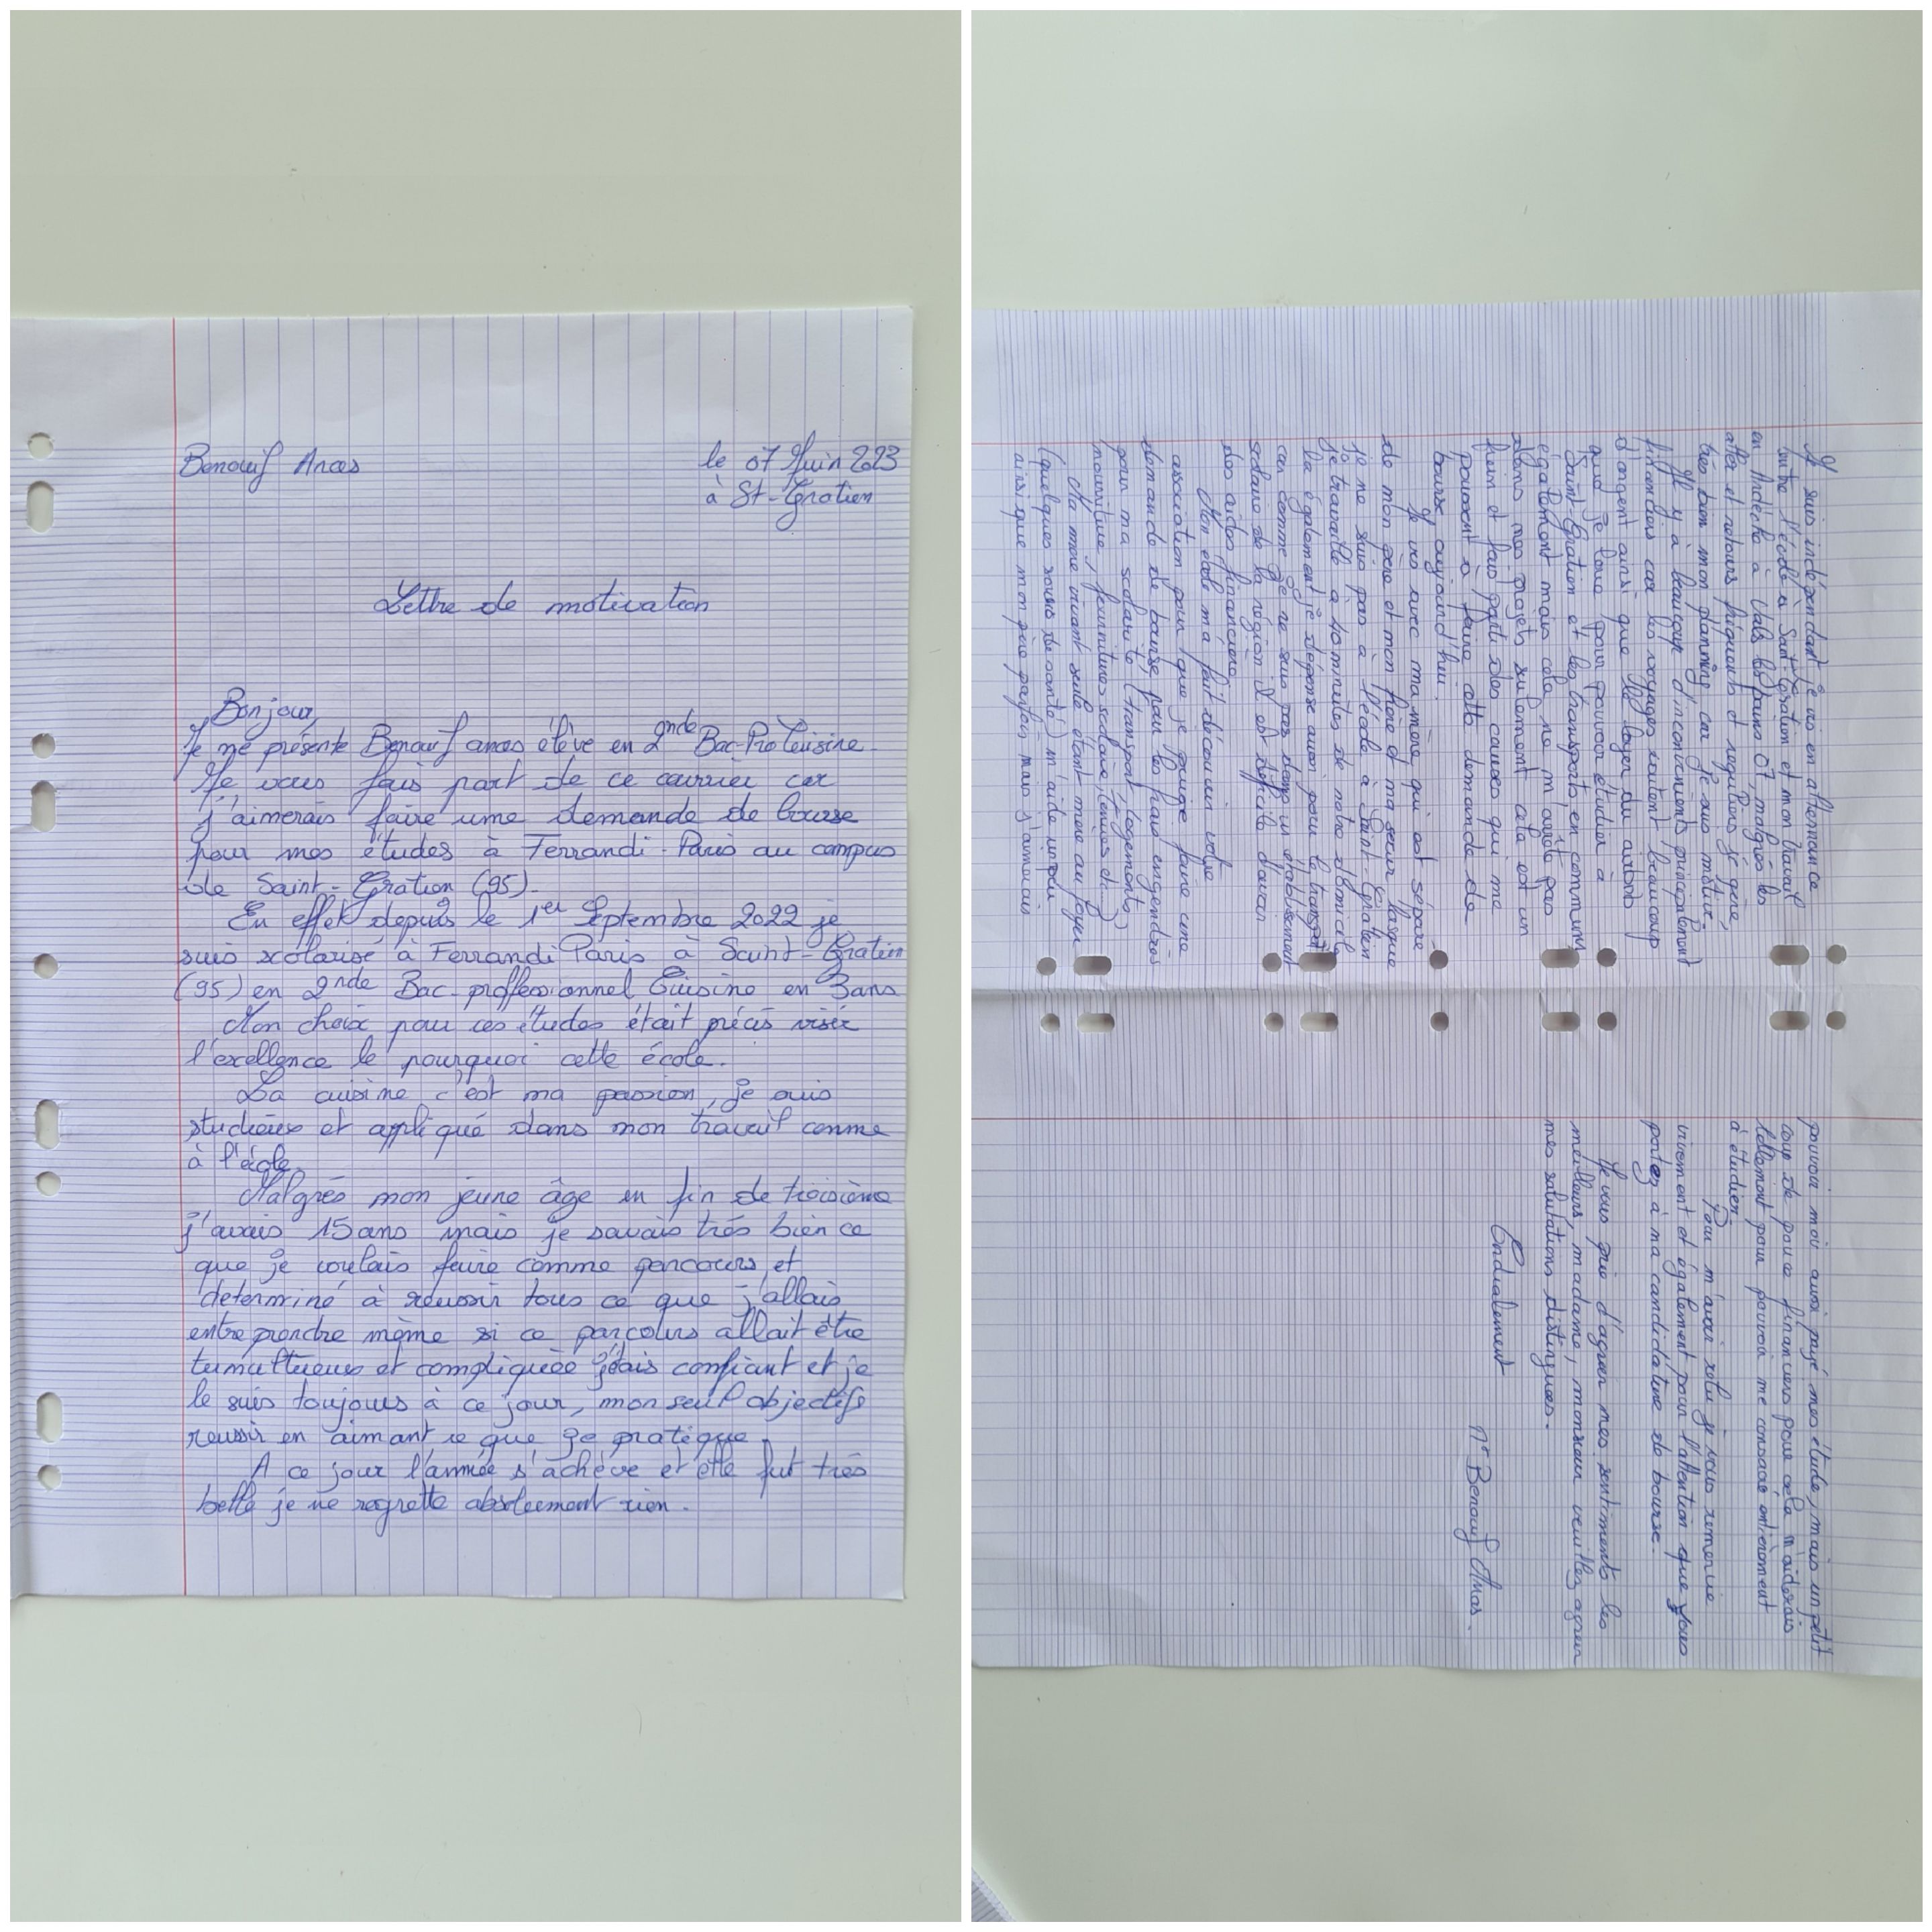 Benouif Anas
le 07 Juin 2023
à St-Gratien
Lettre de motivation
Bonjour,
Je me présente Benouif anas élève en 2nde Bac-Pro Cuisine.
Je vous fais part de ce courrier car
j'aimerais faire une demande de bourse
pour mes études à Ferrandi-Paris au campus
de Saint-Gratien (95).
En effet depuis le 1er Septembre 2022 je
suis scolarisé à Ferrandi Paris à Saint-Gratien
(95) en 2nde Bac-proffessionnel Cuisine en 3ans
Mon choix pour ces études était précis visée
l'excellence le pourquoi cette école.
La cuisine c'est ma passion, je suis
studieux et appliqué dans mon travail comme
à l'école.
Malgrés mon jeune âge en fin de troisième
j'avais 15 ans mais je savais très bien ce
que je voulais faire comme parcours, et
determiné à réussir tous ce que j'allais
entreprendre même si ce parcours allait être
tumultueux et compliquée j'étais confiant et je
le suis toujours à ce jour, mon seul objectifs
reussir en aimant ce que je pratique.
A ce jour l'année s'achève et elle fut très
belle je ne regrette absoleement rien.
Je suis indépendant je vis en alternance
entre l'école à Saint-Gratien et mon travail
en Ardèche à Vals les bains 07, malgrés les
aller et retours fréquents et reguliers je gère
très bien mon planning car je suis motivé.
Il y à beaucoup d'inconvénients principalement
financier car les voyages coutent beaucoup
d'argent ainsi que le loyer du airbnb
quand je loue pour pouvoir étudier à
Saint-Gratien et les transports en communs
également mais cela ne m'arrête pas
dans mes projets seulement cela est un
frein et fais parti des causes qui me
poussent à faire cette demande de
bourse aujourd'hui.
Je vis avec ma mère qui est séparé
de mon père et mon frère et ma soeur lorsque
je ne suis pas à l'école à Saint-Gratien
je travaille à 40 minutes de notre domicile
là également je dépense aussi pour le transport
car comme je ne suis pas dans un établissement
scolaire de la région il est difficile d'avoir
des aides financière.
Mon école m'a fait découvrir votre
association pour que je puisse faire une
demande de bourse pour les frais engendrés
pour ma scolarité (transport, logements,
nourriture, fournitures scolaire, tenues etc)
Ma mère vivant seule étant mère au foyer
(quelques soucis de santé) m'aide un peu
ainsi que mon père parfois mais j'aimerais
pouvoir moi aussi payé mes étude, mais un petit
coup de pouce financiers pour cela m'aiderais
tellement pour pouvoir me consacré entièrement
à étudier.
Pour m'avoir relu je vous remercie
vivement et également pour l'attention que vous
portez à ma candidature de bourse.
Je vous prie d'agréer mes sentiments les
meilleurs, madame, monsieur veuillez agréer
mes salutations distinguées.
Cordialement
Mr Benouif Anas.